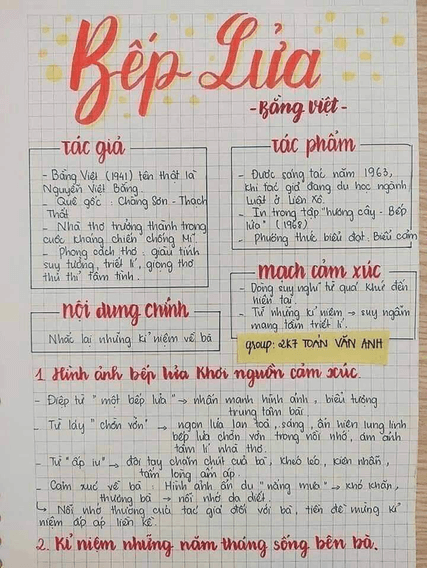 Bếp Lửa
- Bằng Việt -
tác giả
- Bằng Việt (1941) tên thật là
Nguyễn Việt Bằng.
- Quê gốc : Chàng Sơn - Thạch
Thất
- Nhà thơ trưởng thành trong
cuộc kháng chiến chống Mĩ.
- Phong cách thơ : giàu tính
suy tưởng, triết lí, giọng thơ
thủ thỉ tâm tình.
tác phẩm
- Được sáng tác năm 1963,
khi tác giả đang du học ngành
Luật ở Liên Xô.
- In trong tập "Hương cây - Bếp
lửa" (1968)
- Phương thức biểu đạt: Biểu cảm
mạch cảm xúc
- Dòng suy nghĩ từ quá khứ đến
hiện tại.
- Từ những kỉ niệm → suy ngẫm
mang tầm triết lí.
nội dung chính
Nhắc lại những kỉ niệm về bà
group: 2K7 TOÁN VĂN ANH
1. Hình ảnh bếp lửa khơi nguồn cảm xúc.
- Điệp từ "một bếp lửa" → nhấn mạnh hình ảnh, biểu tượng
trung tâm bài.
- Từ láy "chờn vờn" → ngọn lửa lan toả, sáng, ẩn hiện lung linh
bếp lửa chờn vờn trong nỗi nhớ, ám ảnh
tâm lí nhà thơ.
- Từ "ấp iu" → đôi tay chăm chút của bà, khéo léo, kiên nhẫn,
tấm lòng ấm áp.
- Cảm xúc về bà : Hình ảnh ẩn dụ "nắng mưa" → khó khăn,
thương bà → nỗi nhớ da diết.
↳ Nỗi nhớ thương của tác giả đối với bà, tiền đề những kỉ
niệm ấp áp liền kề.
2. Kỉ niệm những năm tháng sống bên bà.